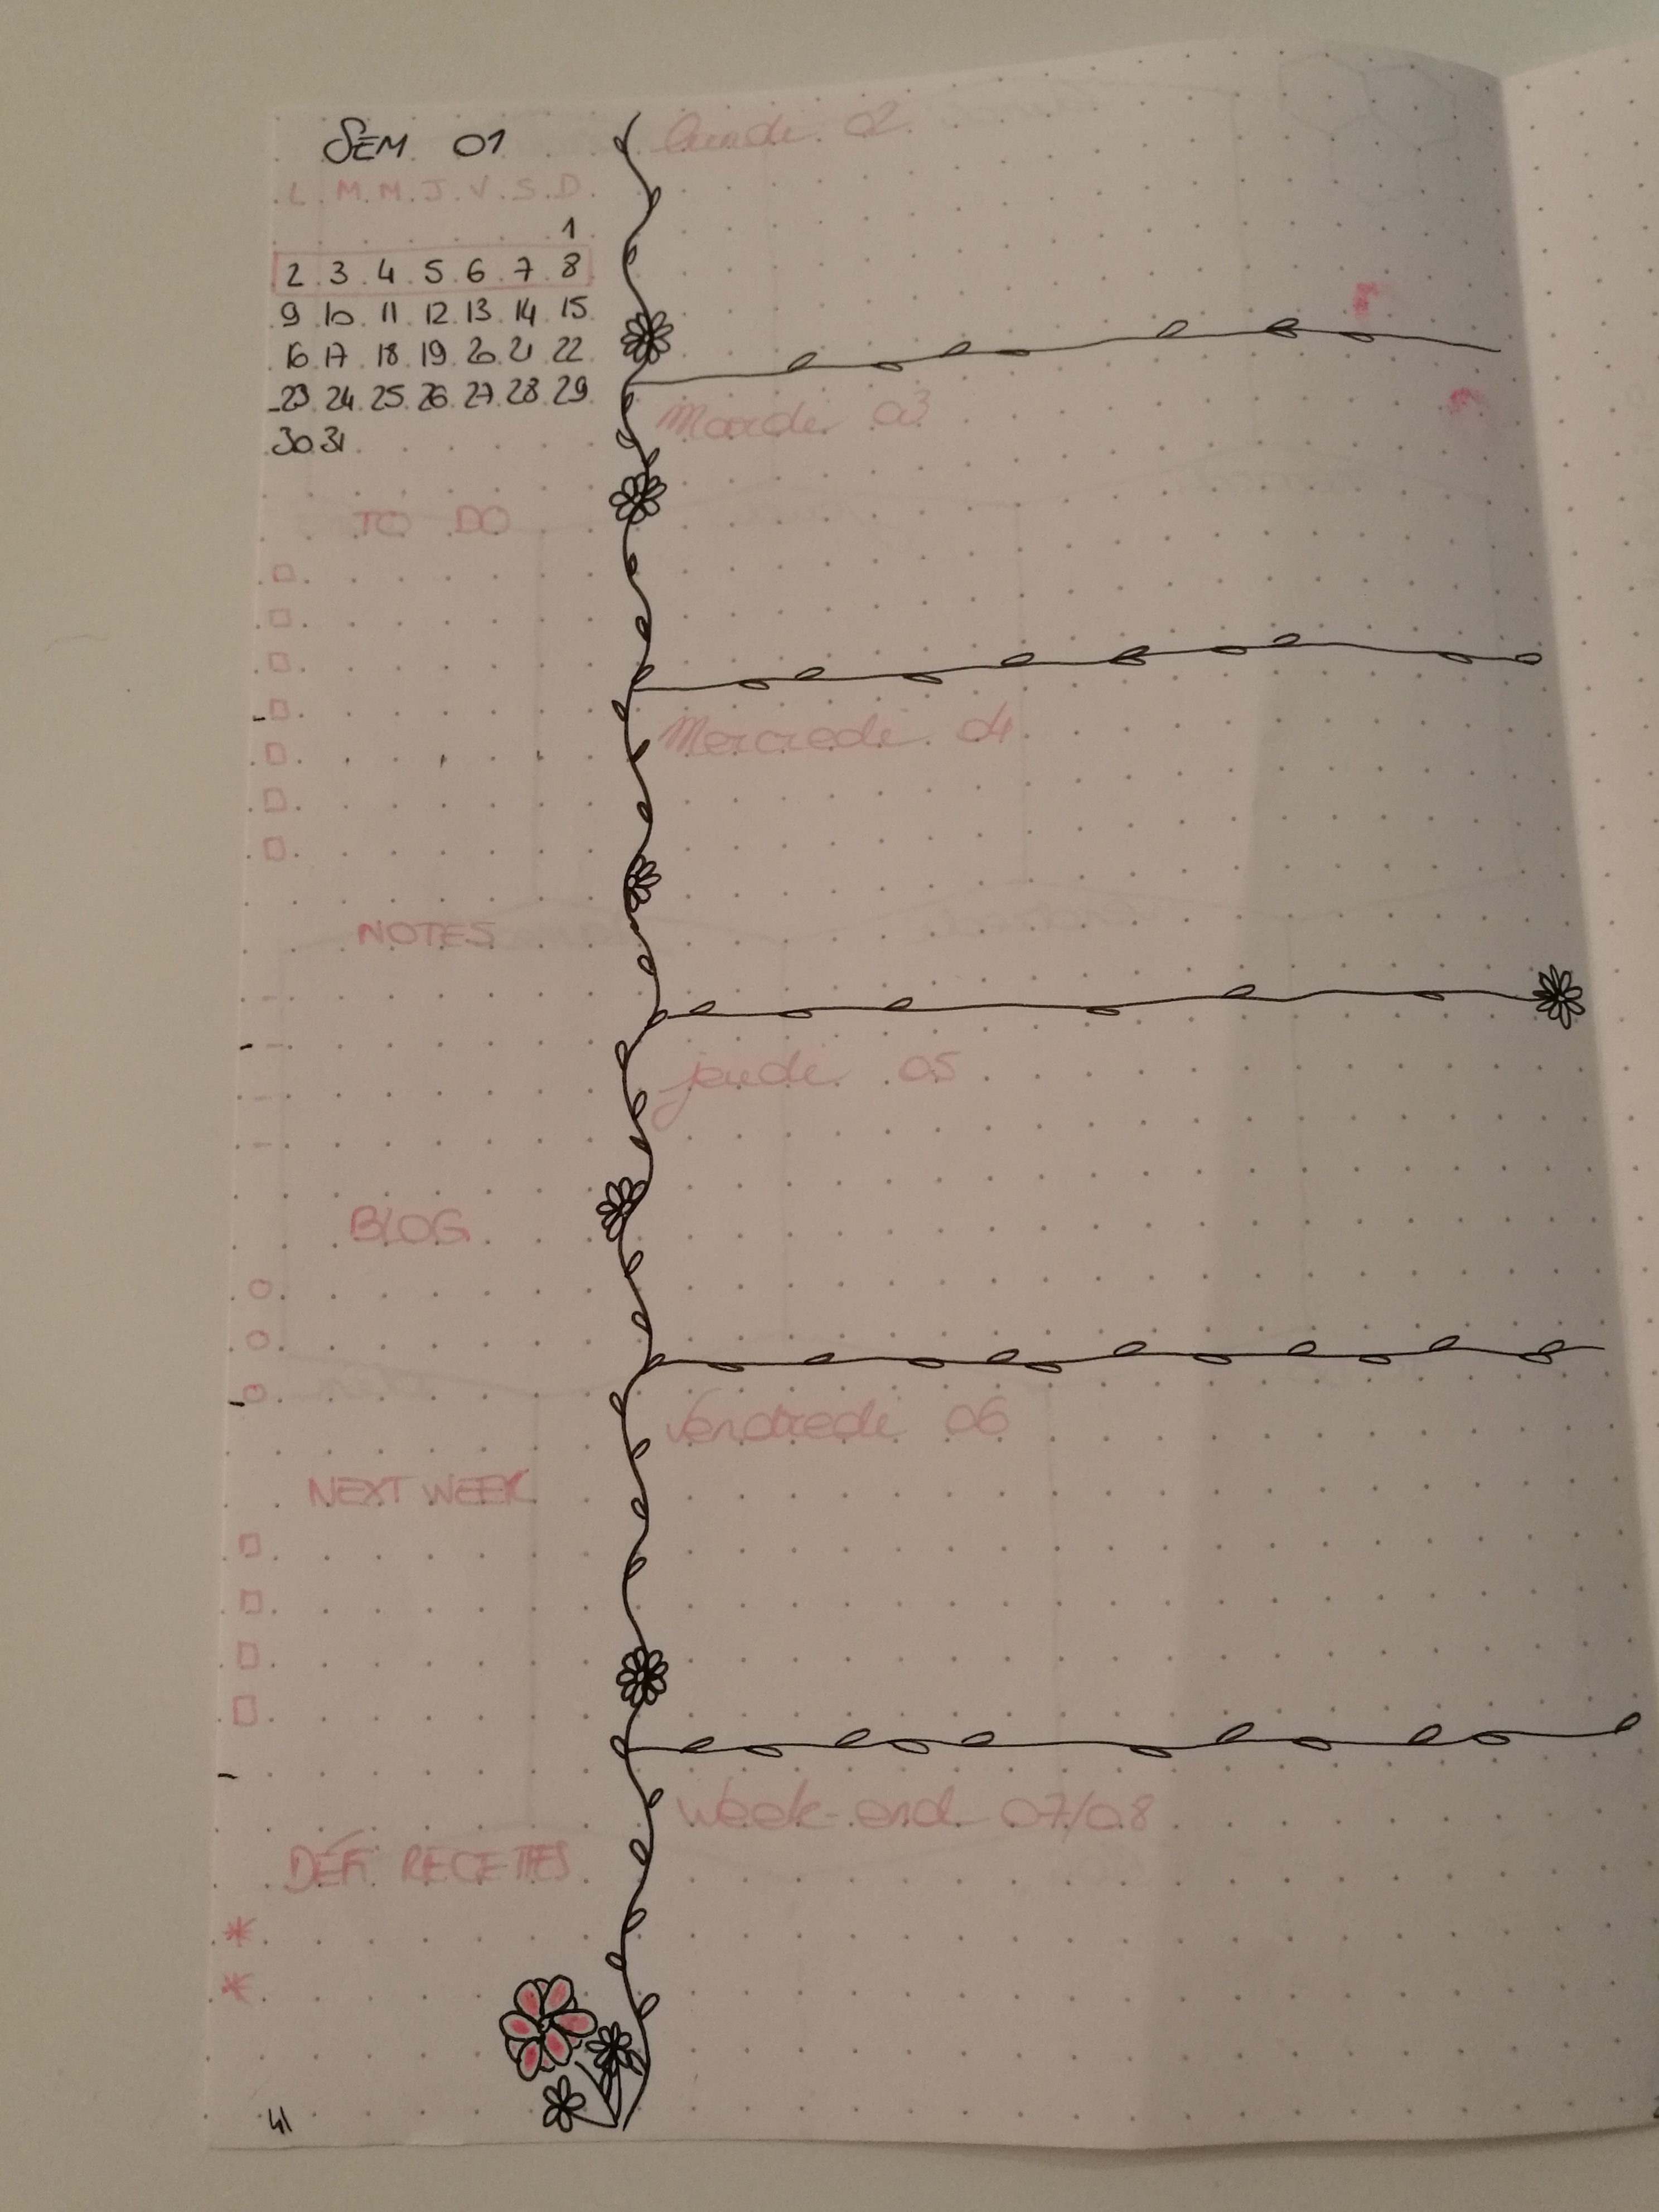 SEM 01
L M M J V S D
1
2 3 4 5 6 7 8
9 10 11 12 13 14 15
16 17 18 19 20 21 22
23 24 25 26 27 28 29
30 31
TO DO
NOTES
BLOG
NEXT WEEK
DÉFI RECETTES
41
lundi 02
Mardi 03
Mercredi 04
jeudi 05
Vendredi 06
Week-end 07/08